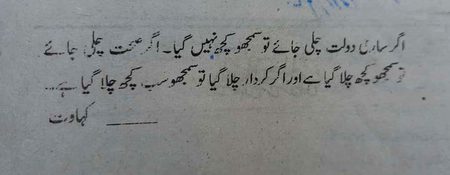 اگر ساری دولت چلی جائے تو سمجھو کچھ نہیں گیا۔ اگر صحت چلی جائے
تو سمجھو کچھ چلا گیا ہے اور اگر کردار چلا گیا تو سمجھو سب کچھ چلا گیا ہے...
کہاوت ———